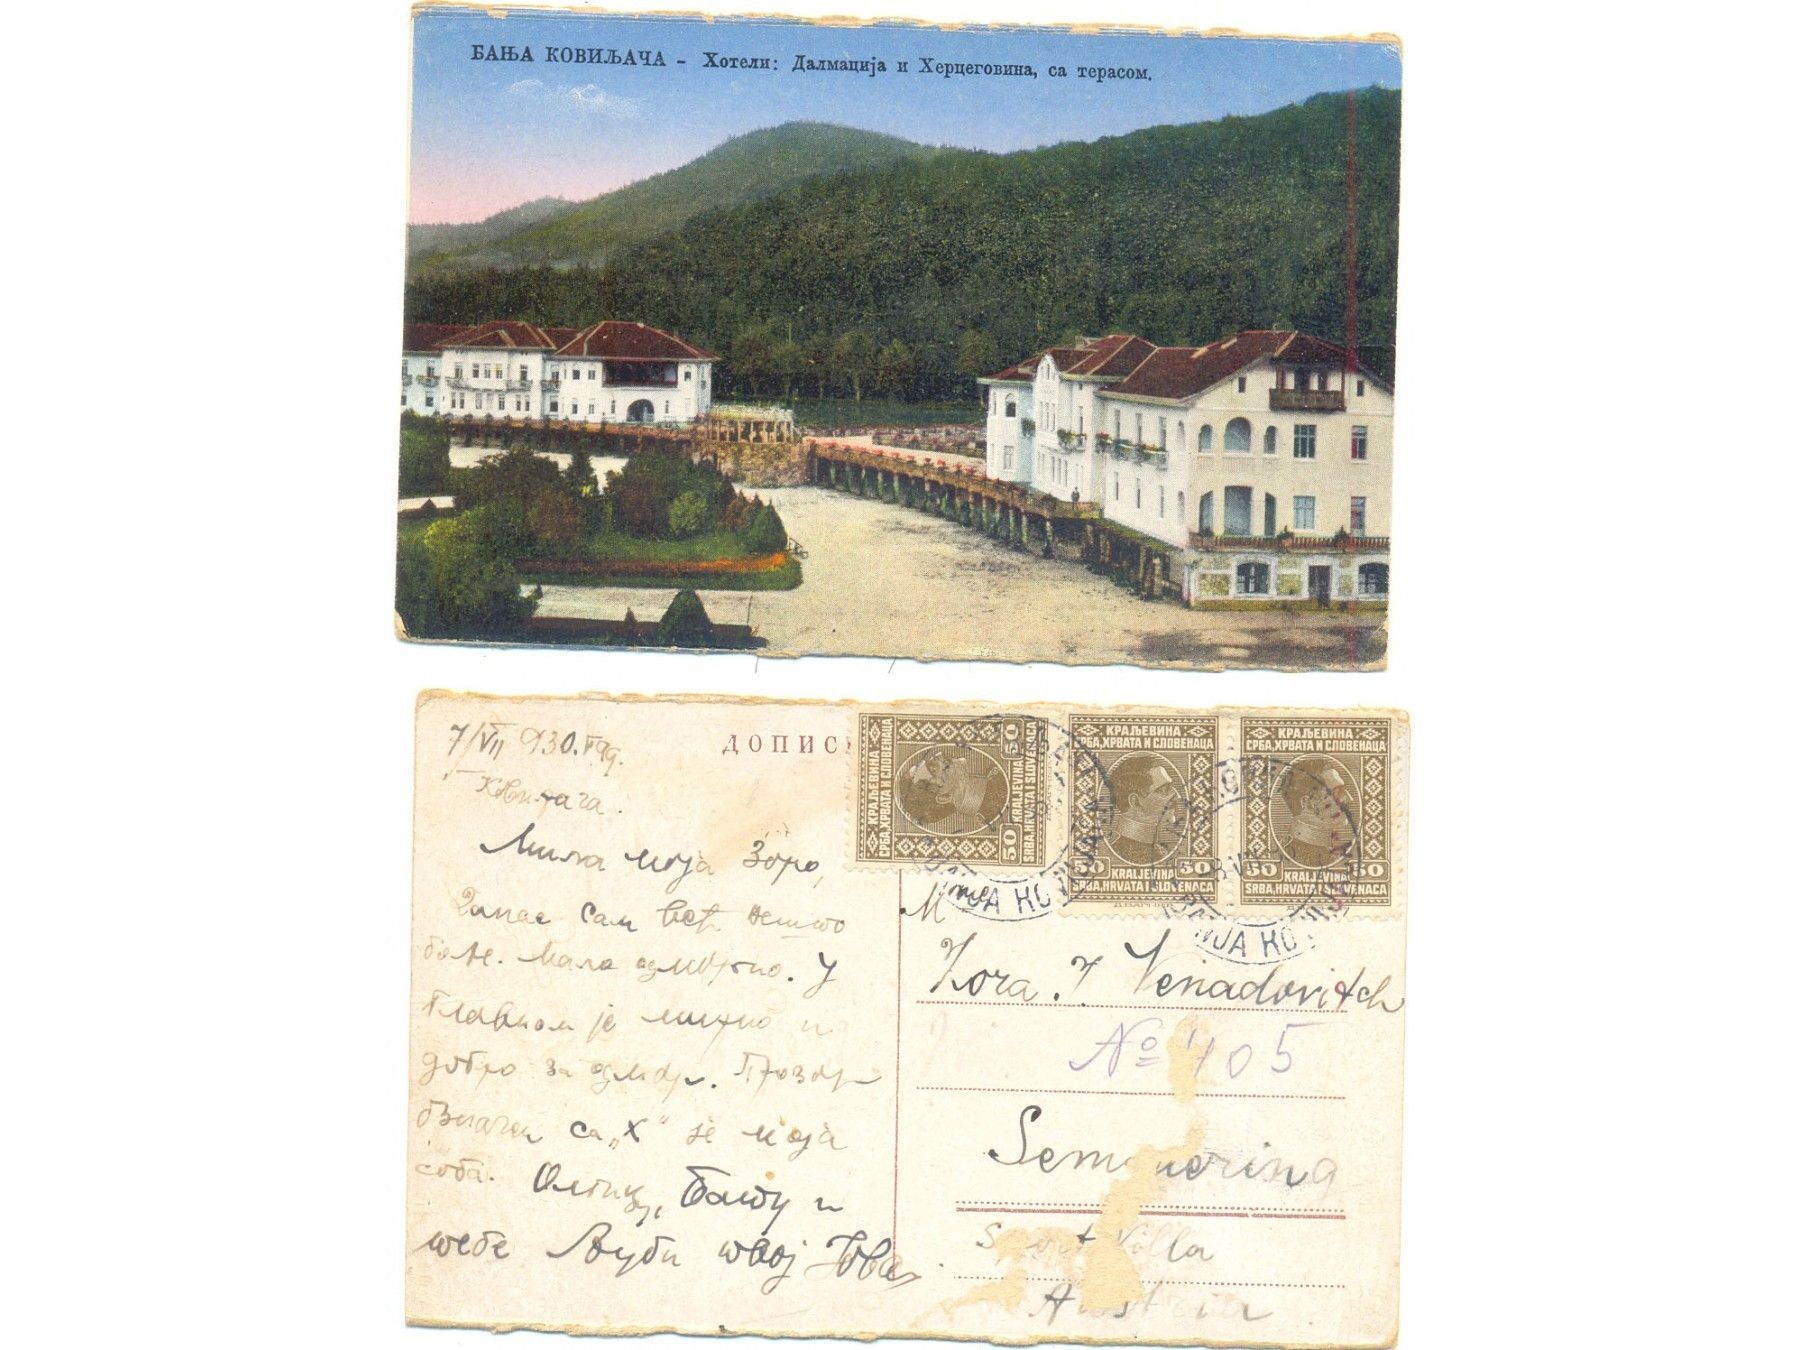 БАЊА КОВИЉАЧА - Хотели: Далмација и Херцеговина, са терасом.
7/VII 930.
Ковиљача.
ДОПИС
Мила моја Зоро,
Данас сам већ нешто
боље. Мало одморно. У
главном је мирно и
добро за одмор. Прозор
означен са „X“ је моја
соба. Олгицу, Бату и
тебе љуби твој Јова
КРАЉЕВИНА
СРБА, ХРВАТА И СЛОВЕНАЦА
50 50
KRALJEVINA
SRBA, HRVATA I SLOVENACA
КРАЉЕВИНА
СРБА, ХРВАТА И СЛОВЕНАЦА
50 50
KRALJEVINA
SRBA, HRVATA I SLOVENACA
КРАЉЕВИНА
СРБА, ХРВАТА И СЛОВЕНАЦА
50 50
KRALJEVINA
SRBA, HRVATA I SLOVENACA
BANJA KOVILJAČA
BANJA KOVILJAČA
Mme
Zora J. Nenadovitch
No 405
Semmering
Sport Villa
Austria